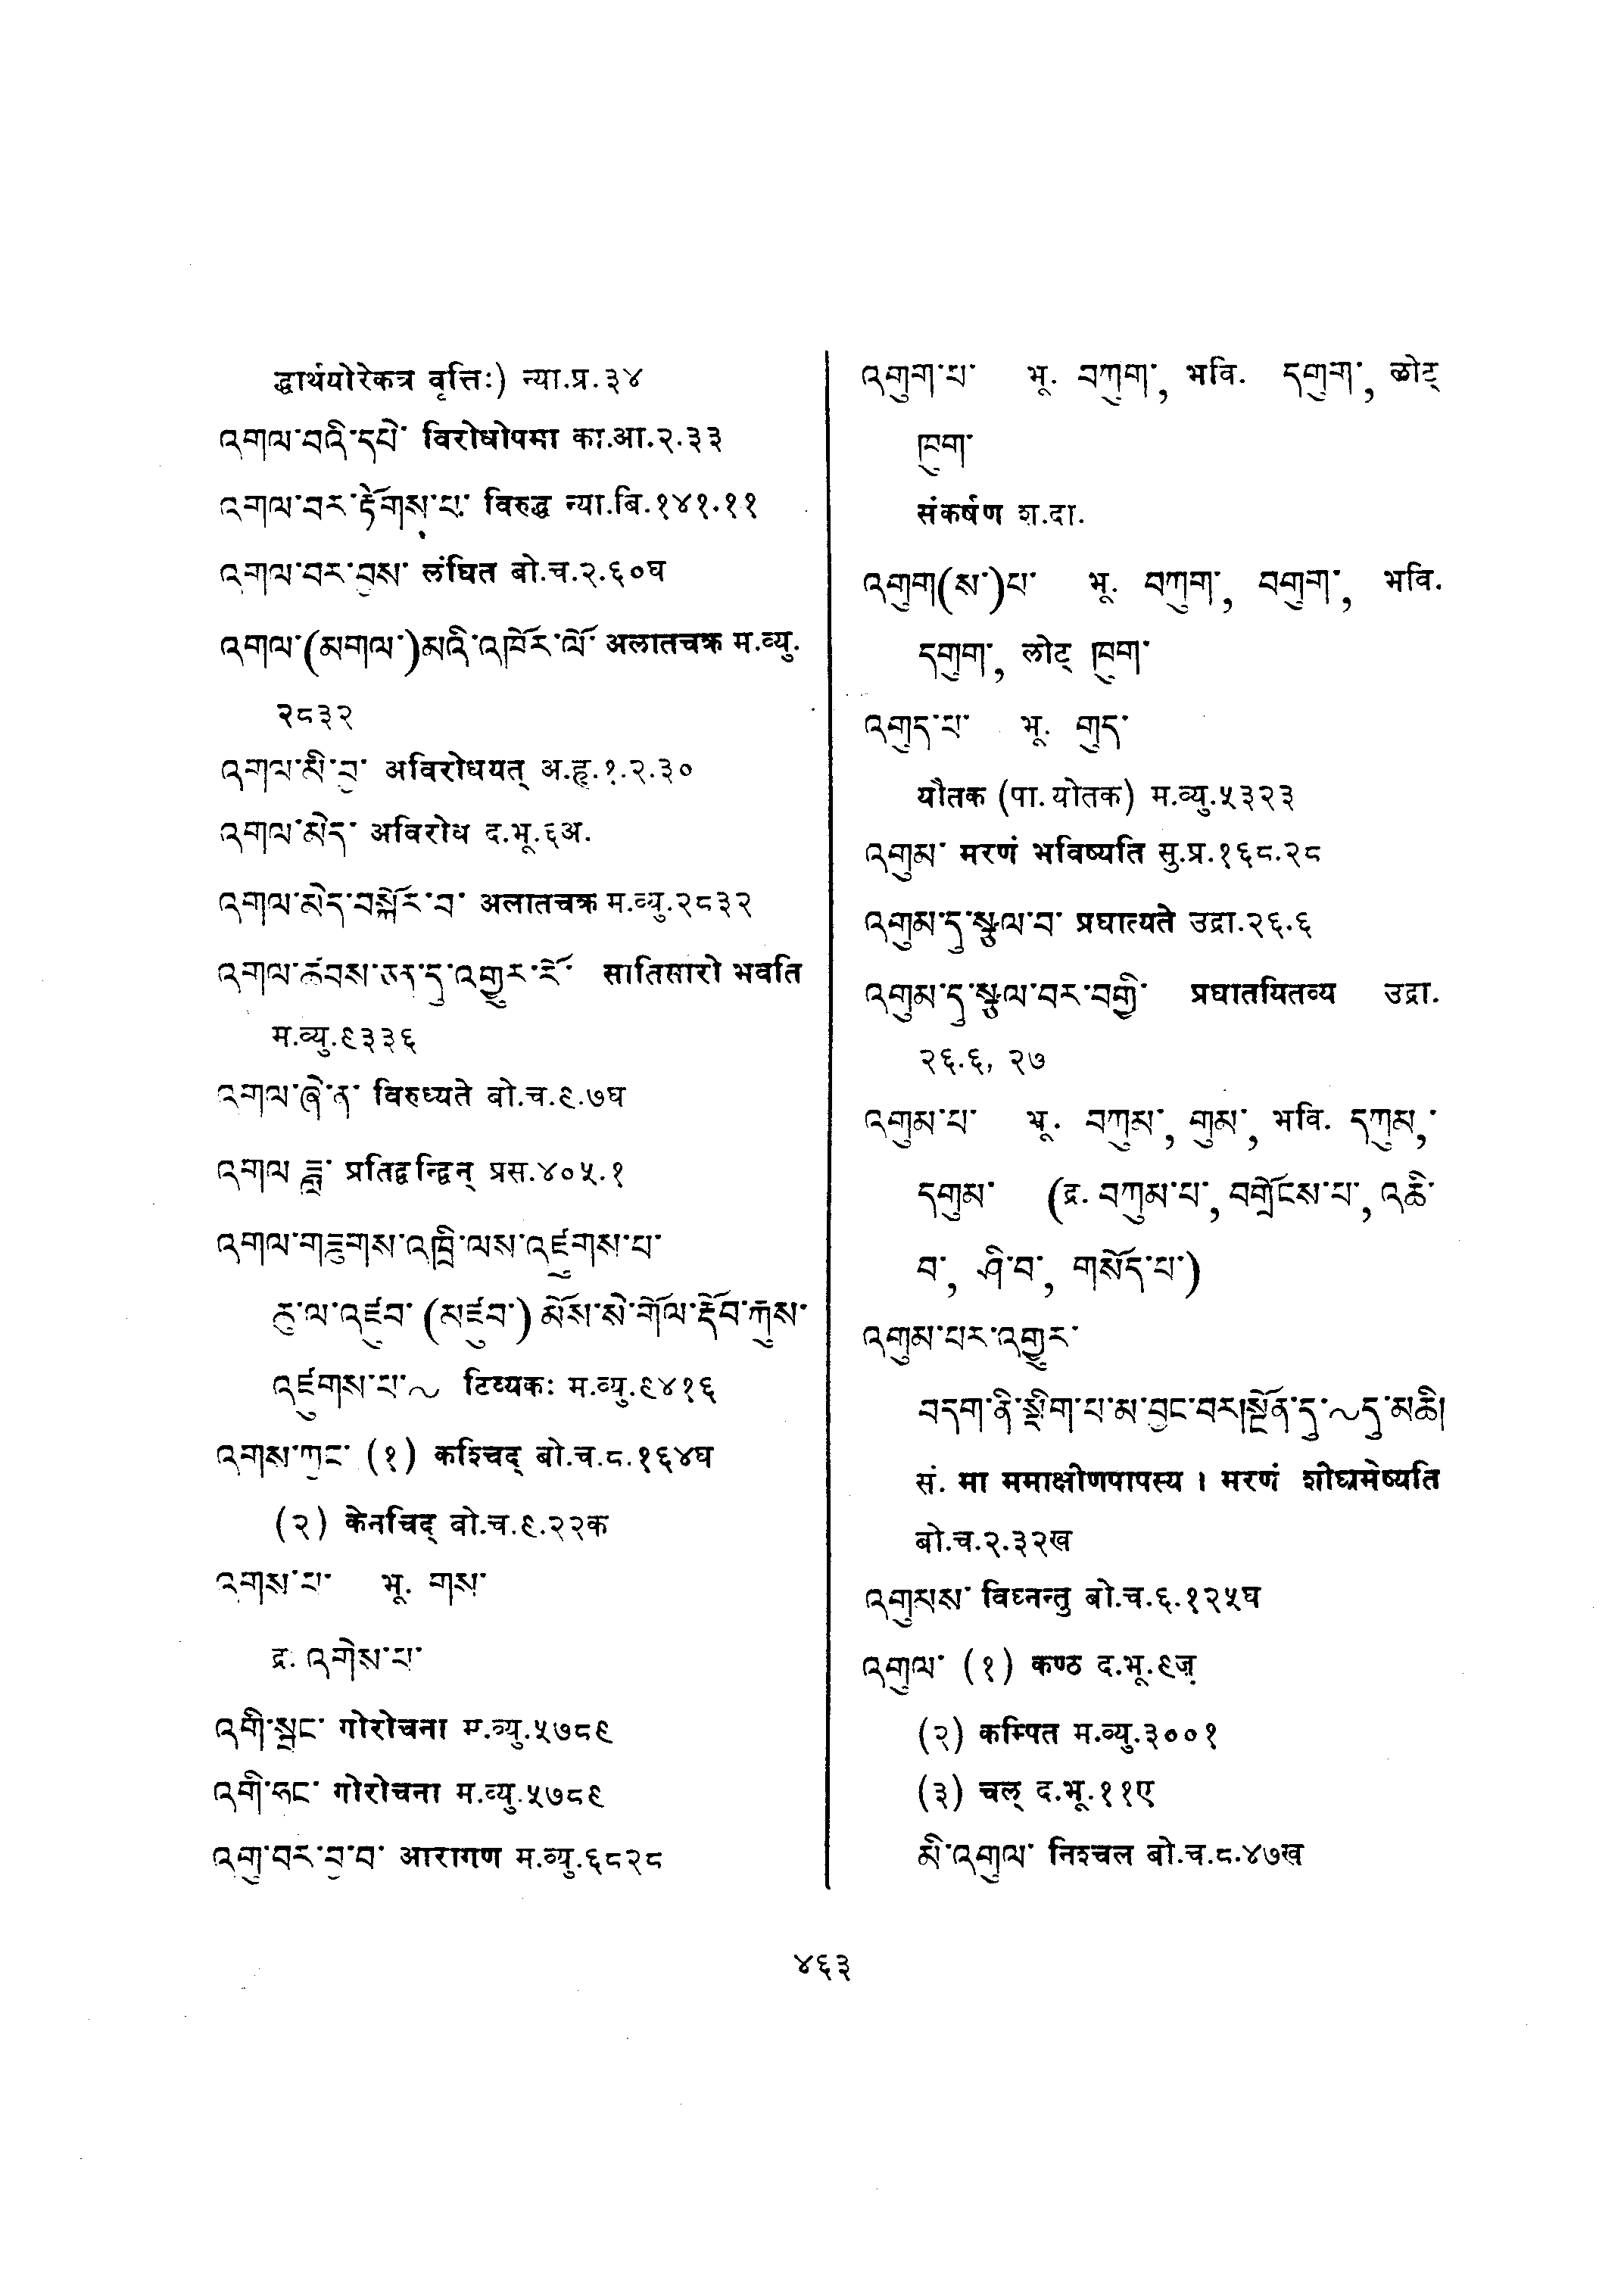 द्धार्थयोरेकत्र वृत्तिः) न्या.प्र.३४
འགལ་བའི་དཔེ་ विरोधोपमा का.आ.२.३३
འགལ་བར་རྟོགས་པ་ विरुद्ध न्या.बि.१४१.११
འགལ་བར་བྱས་ लंघित बो.च.२.६०घ
འགལ་(མགལ་)མའི་འཁོར་ལོ་ अलातचक्र म.व्यु.
२८३२
འགལ་མི་བྱ་ अविरोधयत् अ.हृ.१.२.३०
འགལ་མེད་ अविरोध द.भू.६अ.
འགལ་མེད་བསྐོར་བ་ अलातचक्र म.व्यु.२८३२
འགལ་ཚབས་ཅན་དུ་འགྱུར་རོ་ सातिसारो भवति
म.व्यु.९३३६
འགལ་ཞེ་ན་ विरुध्यते बो.च.९.७घ
འགལ་ཟླ་ प्रतिद्वन्द्विन् प्रस.४०५.१
འགལ་གཟུགས་འཁྲི་ལས་འཛུགས་པ་
རུ་ལ་འཛུབ་ (མཛུབ་) མོས་སེ་གོལ་རྡོབ་ཀུས་
འཛུགས་པ་~ टिप्यकः म.व्यु.९४१६
འགས་ཀྱང་ (१) कश्चिद् बो.च.८.१६४घ
(२) केनचिद् बो.च.९.२२क
འགས་པ་ भू. གས་
द्र. འགེས་པ་
འགི་སྦྲང་ गोरोचना म.व्यु.५७८९
འགི་ཧང་ गोरोचना म.व्यु.५७८९
འགུ་བར་བྱ་བ་ आरागण म.व्यु.६८२८
འགུག་པ་ भू. བཀུག་, भवि. དགུག་, लोट्
ཁུག་
संकर्षण श.दा.
འགུག(ས་)པ་ भू. བཀུག་, བགུག་, भवि.
དགུག་, लोट् ཁུག་
འགུད་པ་ भू. གུད་
यौतक (पा. योतक) म.व्यु.५३२३
འགུམ་ मरणं भविष्यति सु.प्र.१६८.२८
འགུམ་དུ་སྩལ་བ་ प्रघात्यते उद्रा.२६.६
འགུམ་དུ་སྩལ་བར་བགྱི་ प्रघातयितव्य उद्रा.
२६.६, २७
འགུམ་པ་ भू. བཀུམ་, གུམ་, भवि. དཀུམ,་
དགུམ་ (द्र. བཀུམ་པ་, བགྲོངས་པ་, འཆི་
བ་, ཤི་བ་, གསོད་པ་)
འགུམ་པར་འགྱུར་
བདག་ནི་སྡིག་པ་མ་བྱང་བར།སྔོན་དུ་~དུ་མཆི།
सं. मा ममाक्षीणपापस्य । मरणं शीघ्रमेष्यति
बो.च.२.३२ख
འགུམས་ विघ्नन्तु बो.च.६.१२५घ
འགུལ་ (१) कण्ठ द.भू.९ज़
(२) कम्पित म.व्यु.३००१
(३) चल् द.भू.११ए
མི་འགུལ་ निश्चल बो.च.८.४७ख
४६३